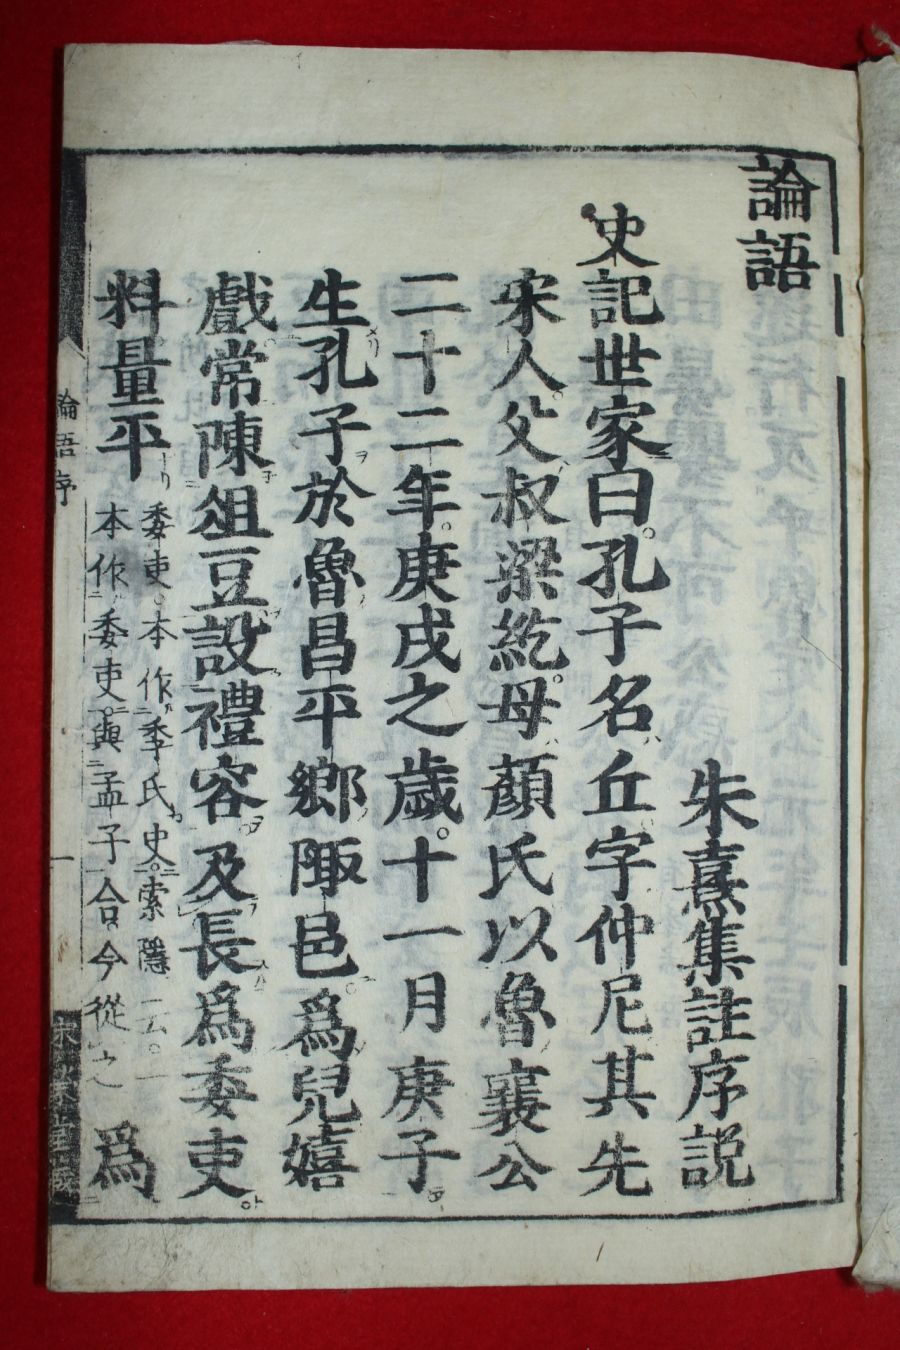 論語
朱熹集註序説
史記世家曰。孔子名丘字仲尼其先
宋人。父叔梁紇。母顔氏以魯襄公
二十二年。庚戌之歲。十一月庚子
生孔子於魯昌平鄉陬邑爲兒嬉
戲常陳俎豆設禮容及長爲委吏
料量平
委吏。本作季氏史。索隱云。一
本作委吏。與孟子合。今從之
爲
論語序
一